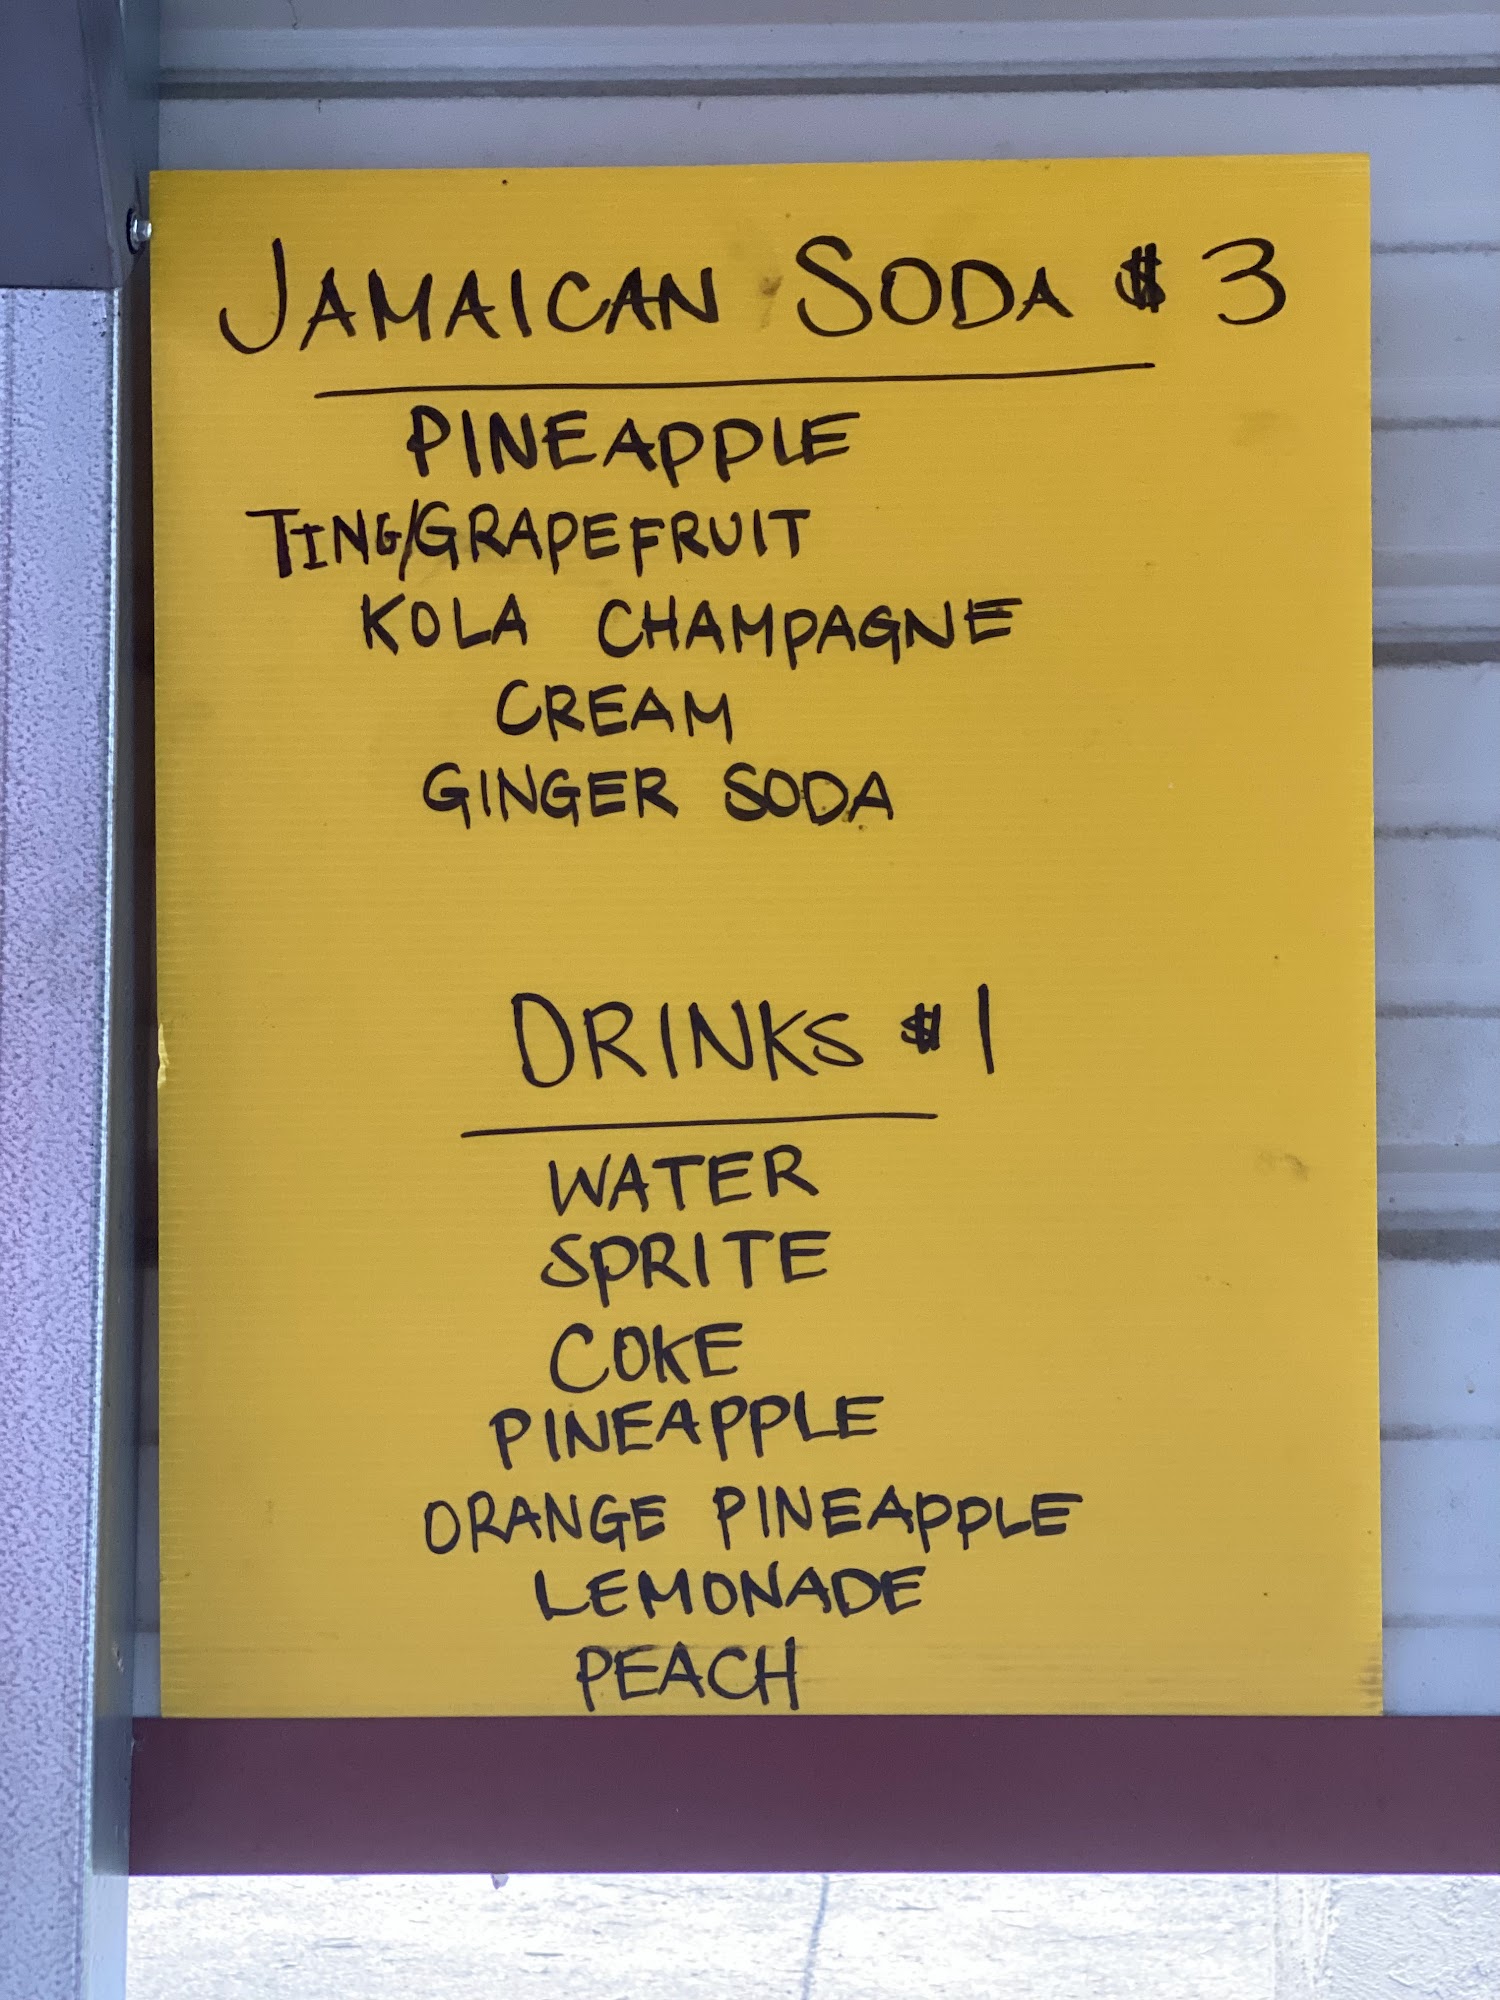 JAMAICAN SODA $3
PINEAPPLE
TING/GRAPEFRUIT
KOLA CHAMPAGNE
CREAM
GINGER SODA
DRINKS $1
WATER
SPRITE
COKE
PINEAPPLE
ORANGE PINEAPPLE
LEMONADE
PEACH